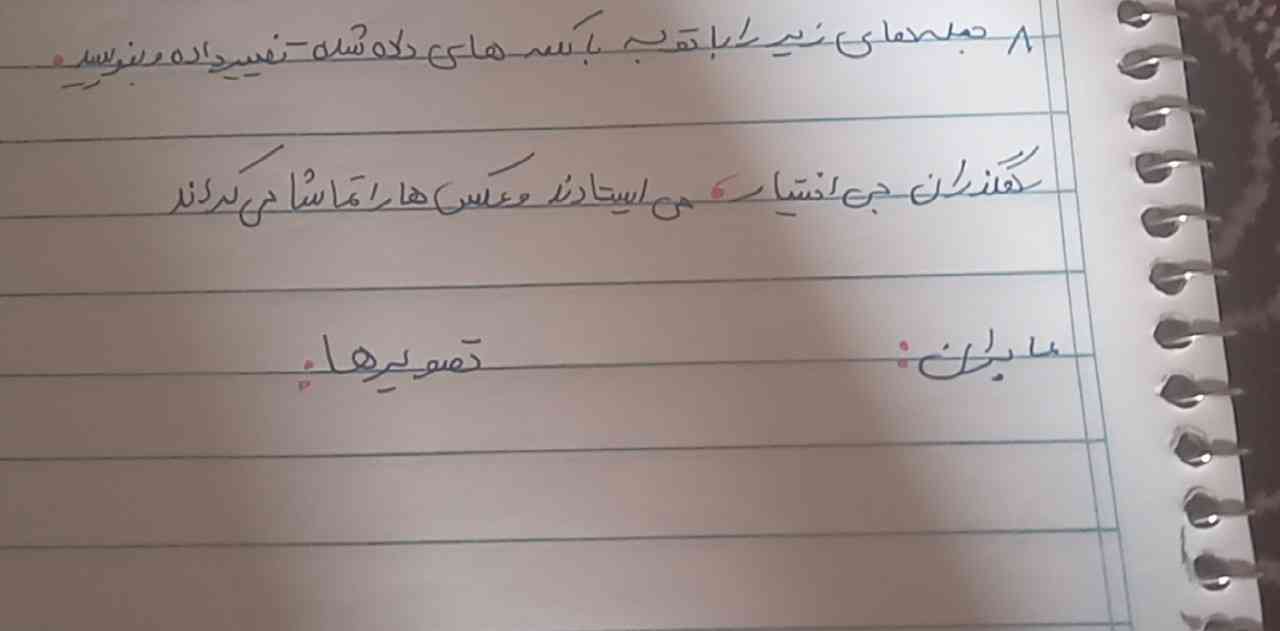 ۸ جمله‌های زیر را با توجه به کلمه های داده شده تغییر داده و بنویسید.
رهگذران بی اختیار، می ایستادند و عکس ها را تماشا می کردند
عابران: تصویرها: